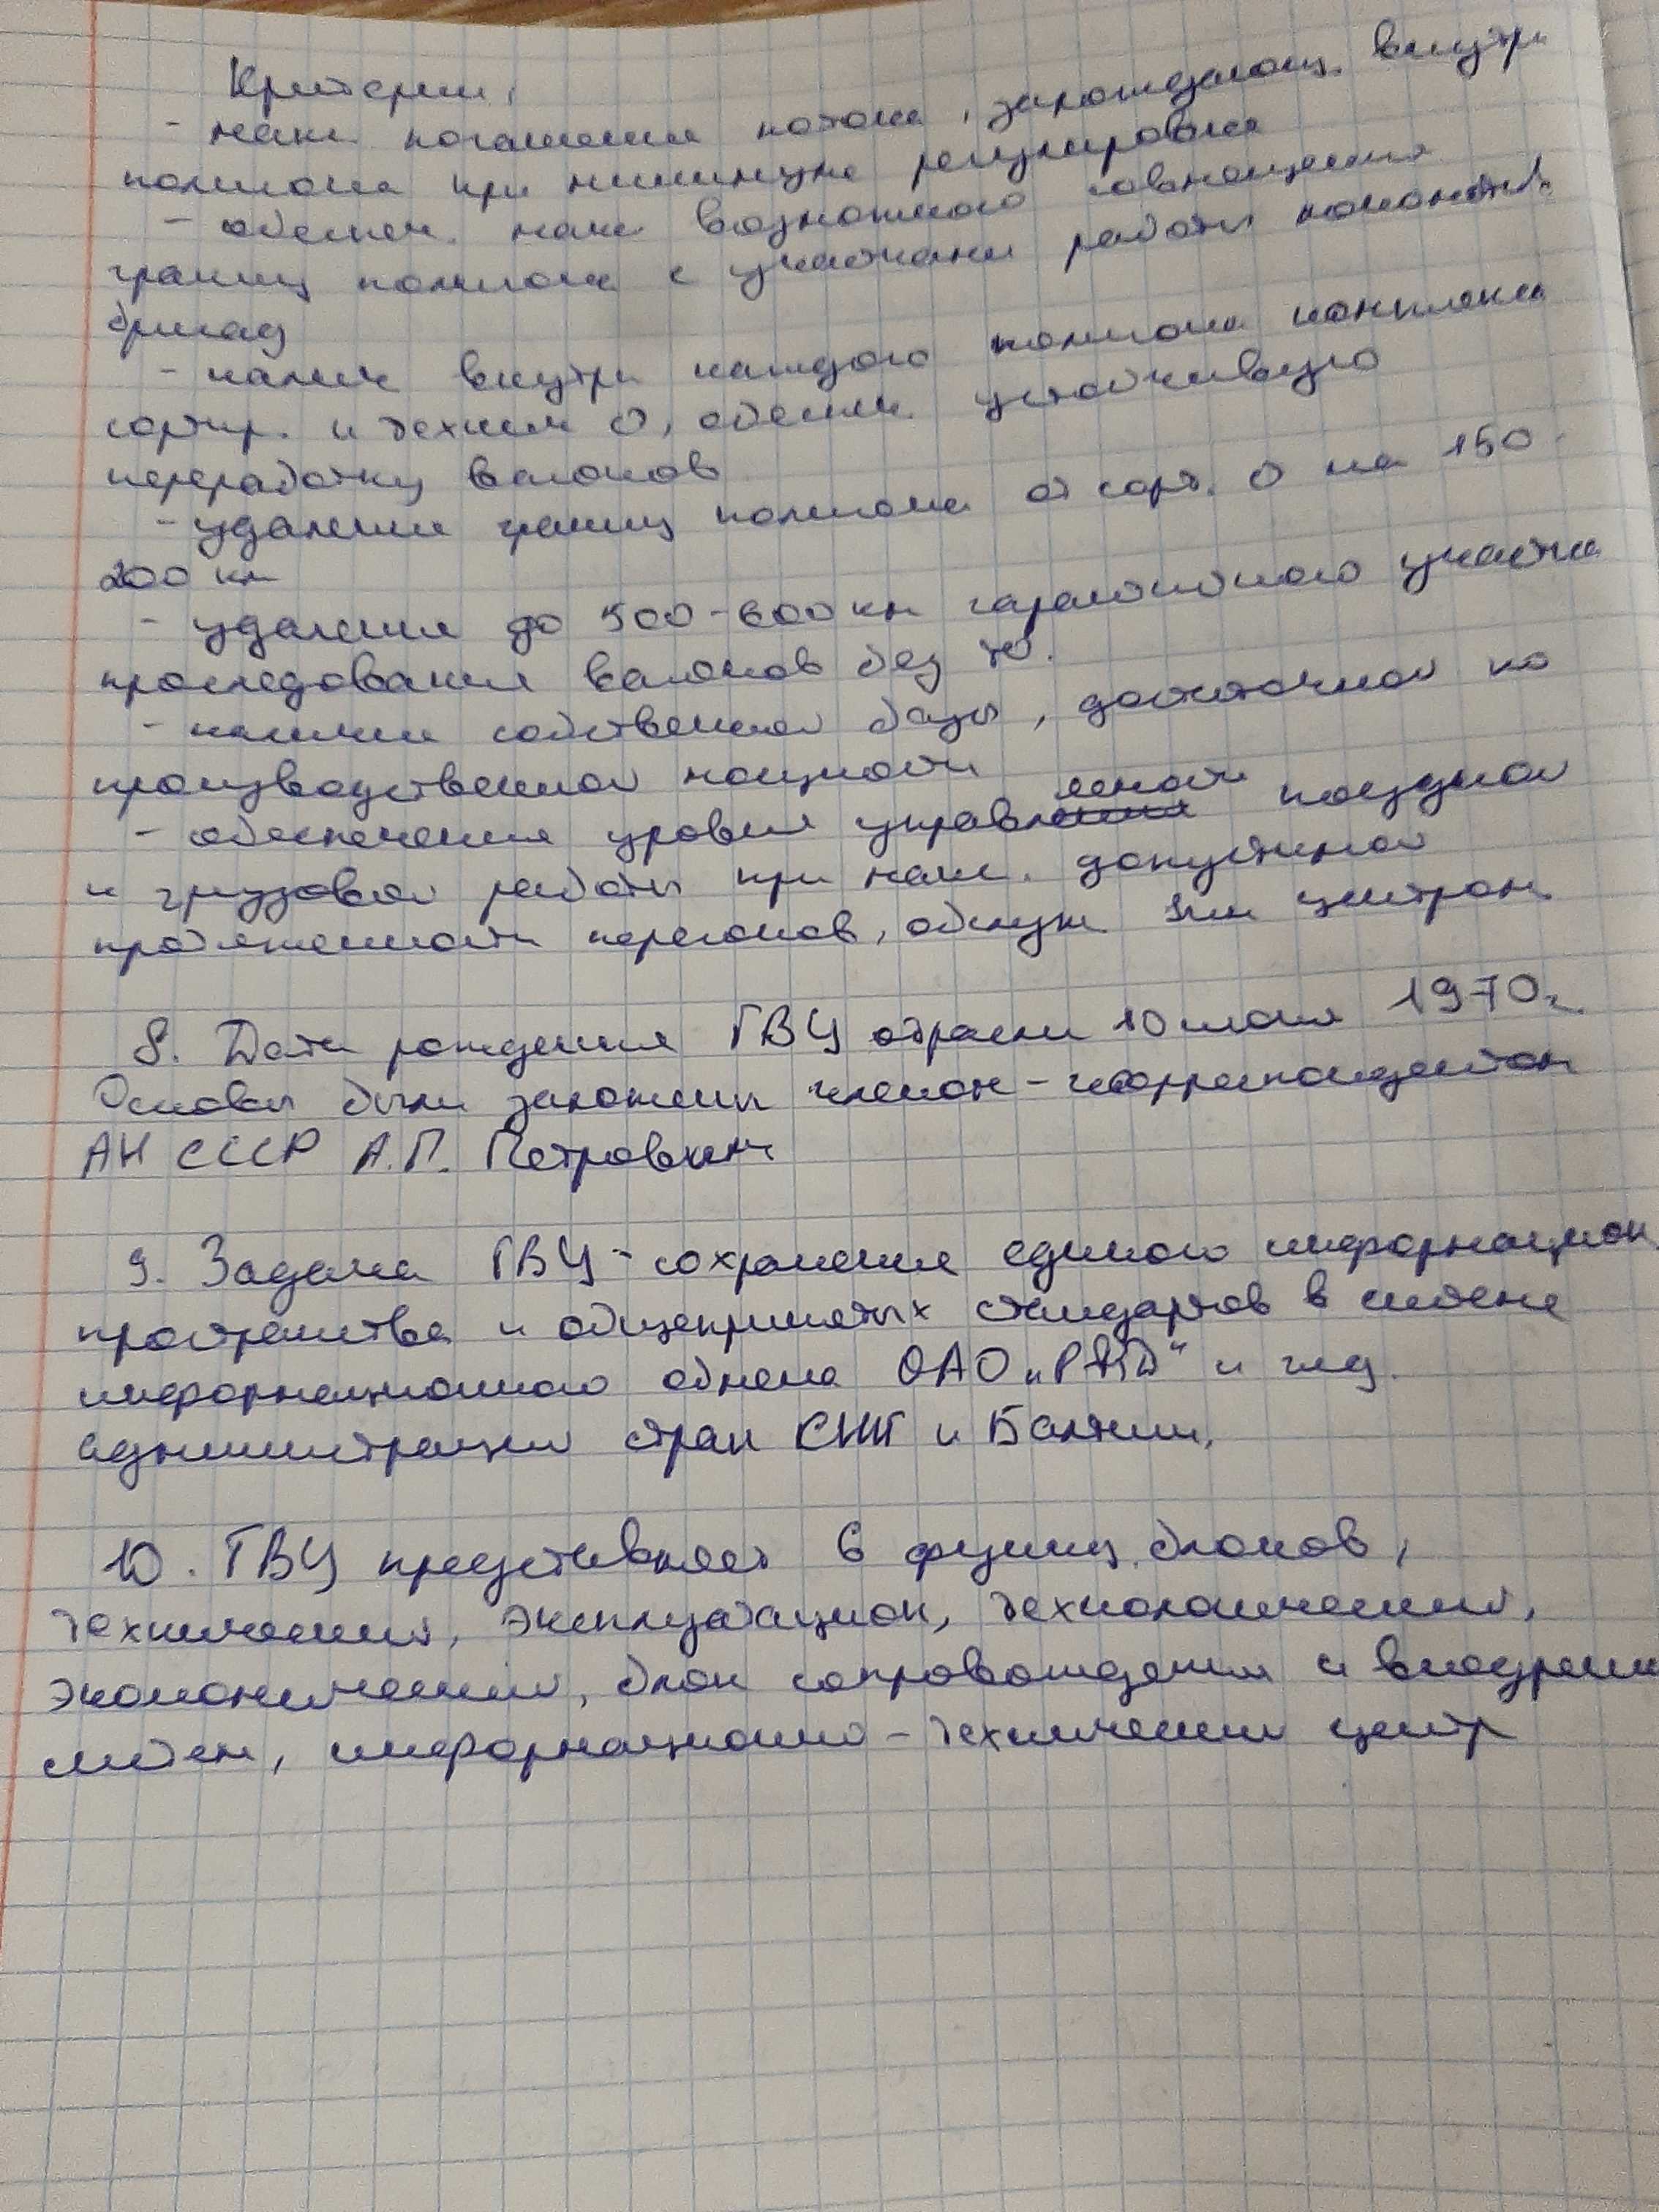 Критерии:
- макс погашения потока, зарождающ. внутри
полигона при минимуме регулировки
- обеспеч. макс возможного совмещения
границ полигона с участками работы локомотив.
бригад
- налич внутри каждого полигона комплекса
сортир. и технич О, обеспеч. устойчивую
переработку вагонов
- удаление границ полигона от сорт. О на 150-
200 км
- удаление до 500-600 км гарантийного участка
проследования вагонов без ТО.
- наличие собственной базы, достаточной по
производственной мощности
- обеспечение уровня управляемости поездной
и грузовой работы при макс. допустимой
протяженности перегонов, обслуж этим центром
8. Дата рождения ГВЦ отрасли 10 июля 1970г.
Основы были заложены членом-корреспондентом
АН СССР А.П. Петровым
9. Задача ГВЦ - сохранение единого информацион.
пространства и общепринятых стандартов в системе
информационного обмена ОАО „РЖД“ и жд.
администраций стран СНГ и Балтии.
10. ГВЦ представляет 6 функц. блоков:
технический, эксплуатацион, технологический,
экономический, блок сопровождения и внедрения
систем, информационно-технический центр